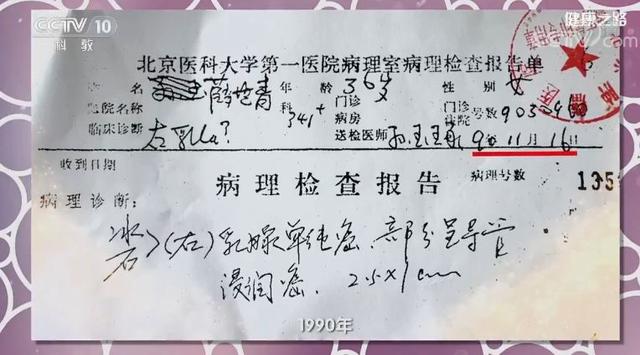 CCTV 10
科教
健康之路
北京医科大学第一医院病理室病理检查报告单
姓名 年龄 36岁 性别 女
医院名称 科 341+ 门诊病房 门诊住院号数
临床诊断 左乳Ca? 送检医师 90年11月16日
收到日期
病理检查报告 病理号数
病理诊断:
冰石>(左)乳腺单纯癌 部分呈导管
浸润癌. 2.5×1cm
1990年